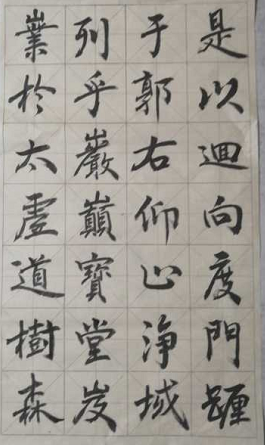 是以迴向度門躔
于郭右仰止淨域
列乎巖巔寶堂岌
嶪於太虛道樹森